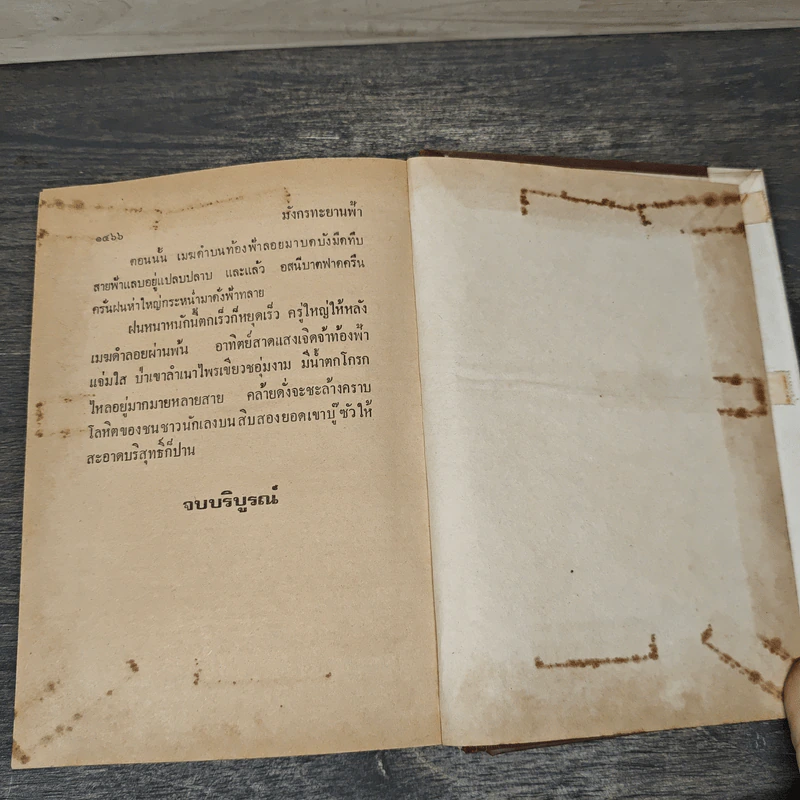 มังกรทะยานฟ้า
๑๔๖๖
ตอนนั้น เมฆดำบนท้องฟ้าลอยมาบดบังมืดทึบ
สายฟ้าแลบอยู่แปลบปลาบ และแล้ว อสนีบาตฟาดครืน
ครั่นฝนห่าใหญ่กระหน่ำมาดั่งฟ้าทลาย
ฝนหนาหนักนี้ตกเร็วก็หยุดเร็ว ครู่ใหญ่ให้หลัง
เมฆดำลอยผ่านพ้น อาทิตย์สาดแสงเจิดจ้าท้องฟ้า
แจ่มใส ป่าเขาลำเนาไพรเขียวชอุ่มงาม มีน้ำตกโกรก
ไหลอยู่มากมายหลายสาย คล้ายดั่งจะชะล้างคราบ
โลหิตของชนชาวนักเลงบนสิบสองยอดเขาบู๊ซัวให้
สะอาดบริสุทธิ์ก็ปาน
จบบริบูรณ์